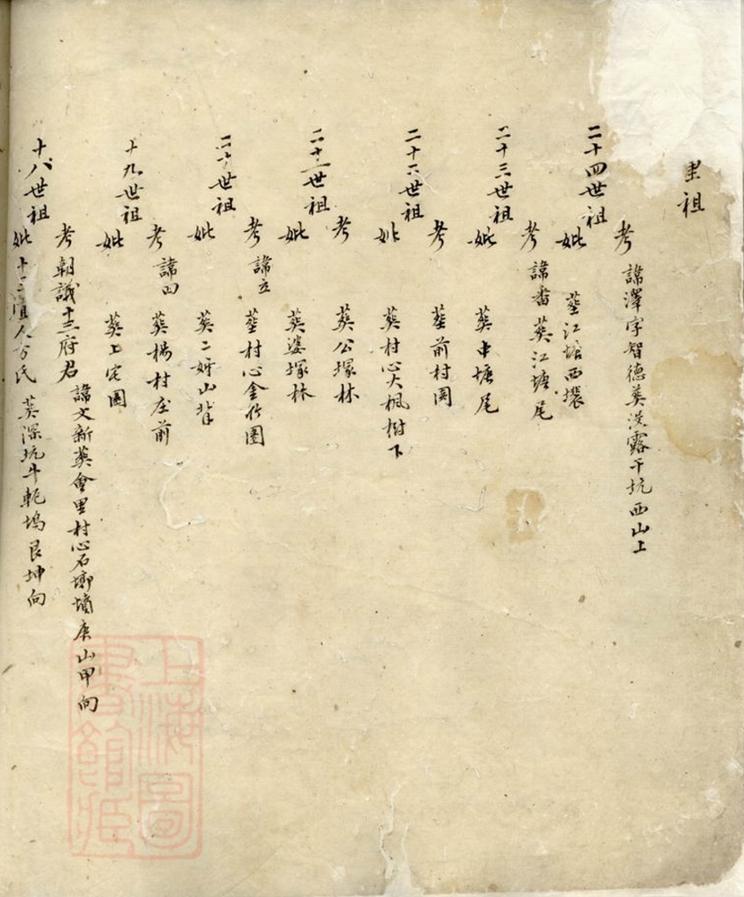 里祖
二十四世祖
考 諱澤字智德葬洪露干坑西山上
妣 葬江塘西壈
二十三世祖
考 諱番 葬江塘尾
妣 葬中塘尾
二十二世祖
考 葬前村園
妣 葬村心大楓樹下
二十一世祖
考 葬公塚林
妣 葬婆塚林
二十世祖
考 諱立 葬村心金竹園
妣 葬二 山背
十九世祖
考 諱四 葬楊村庄前
妣 葬上宅園
十八世祖
考 朝議十三府君 諱文新葬會里村心石墈墳庚山甲向
妣 十二 人方氏 葬深坑牛軛塢艮坤向
上海圖
書館藏